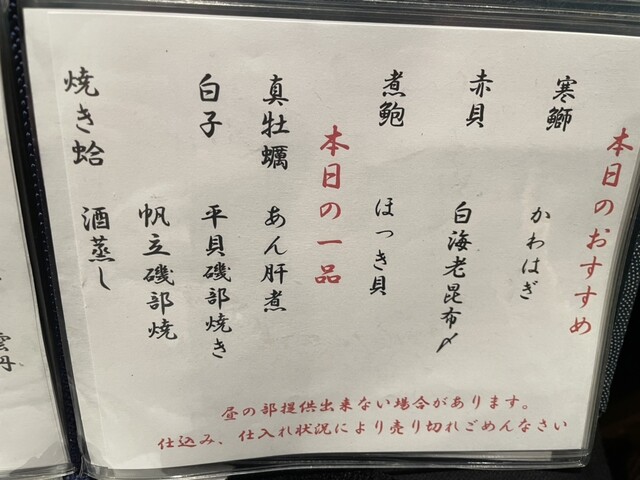 本日のおすすめ
寒鰤
かわはぎ
赤貝
白海老昆布〆
煮鮑
ほっき貝
本日の一品
真牡蠣
あん肝煮
白子
平貝磯部焼き
帆立磯部焼
焼き蛤
酒蒸し
昼の部提供出来ない場合があります。
仕込み、仕入れ状況により売り切れごめんなさい
雲丹